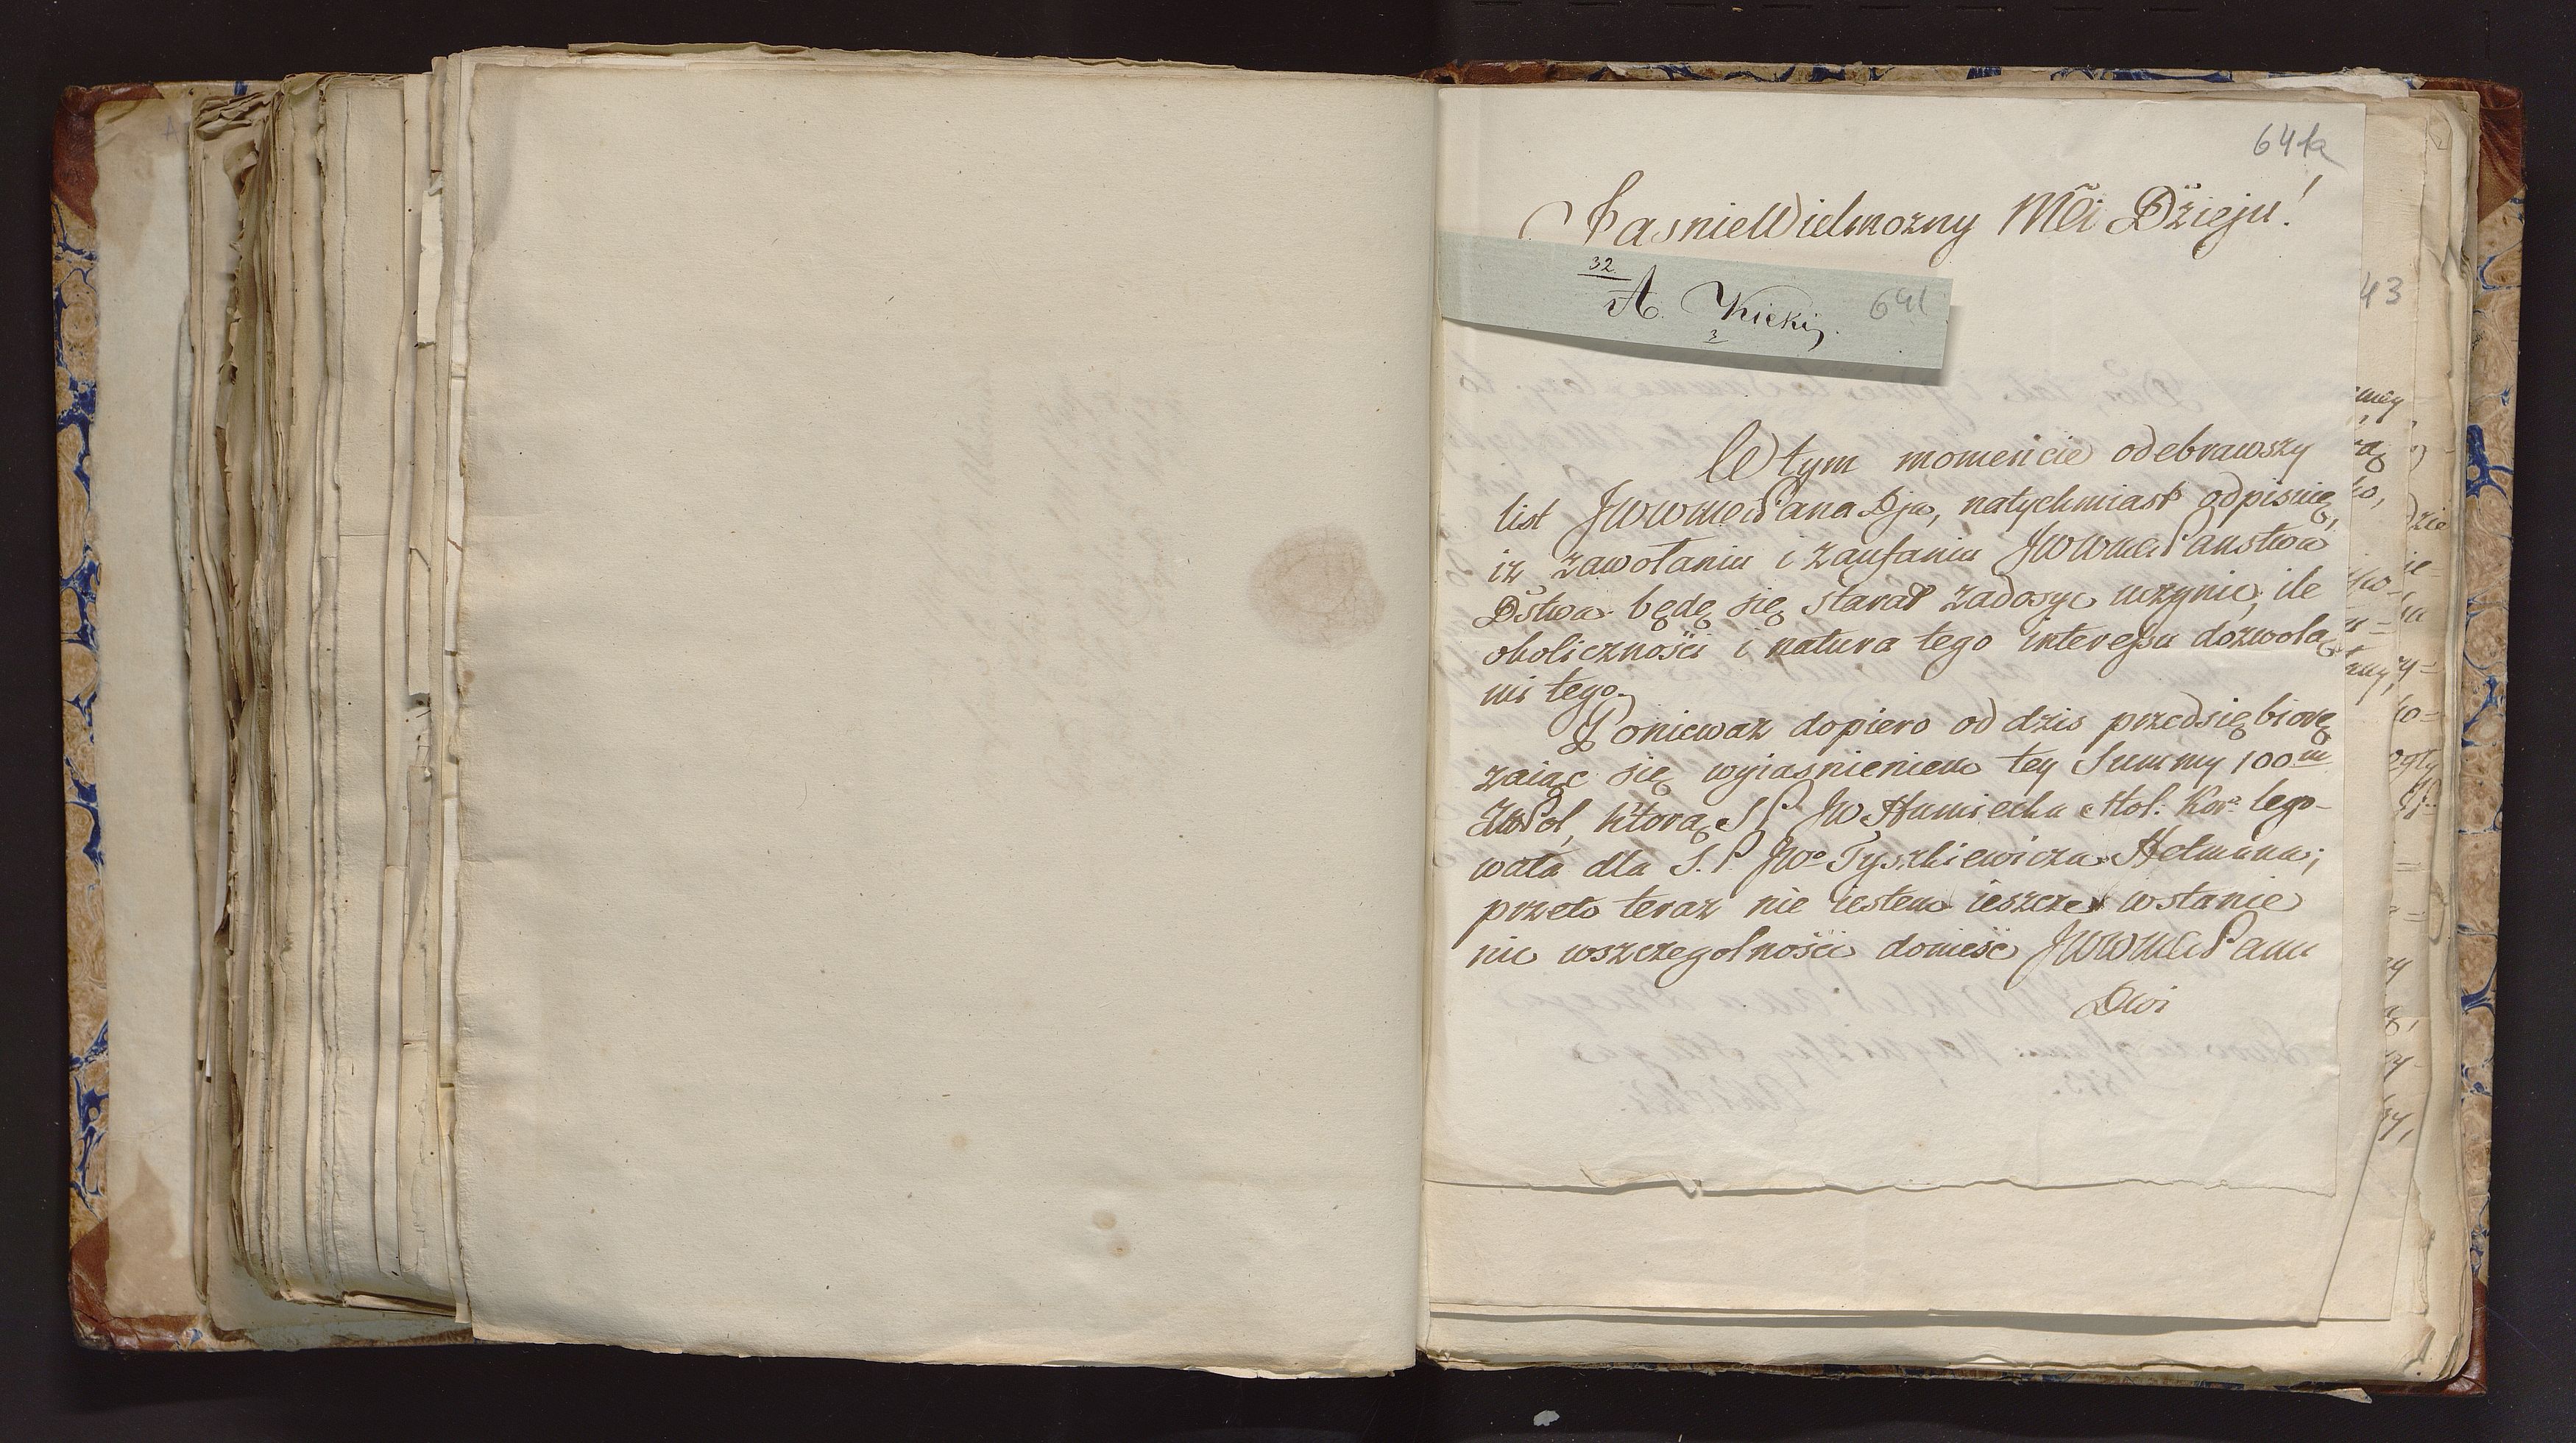 641a
JasnieWielmozny Mći Dżieju!
32
A. Kicki
3
641
43
W tym momencie odebrawszy
list JWWMći Pana Dja, natychmiast odpisuię,
iż zawołaniu i zaufaniu JWWMći Panstwa
Dstwa będę się starał zadosyć uczynić, ile
okoliczności i natura tego interessu dozwolą
mi tego.
Poniewaz dopiero od dzis przedsiębiorę
zaiąc się wyiasnieniem tey Summy 100m
ZłłPol, ktorą S P. JW Humiecka Mol: Kor: lego-
wała dla S. P. JWo Tyszkiewicza Hetmana;
przeto teraz nie iestem ieszcze wstanie
nic wszczegolności donieść JWWMći Panu
Dwi